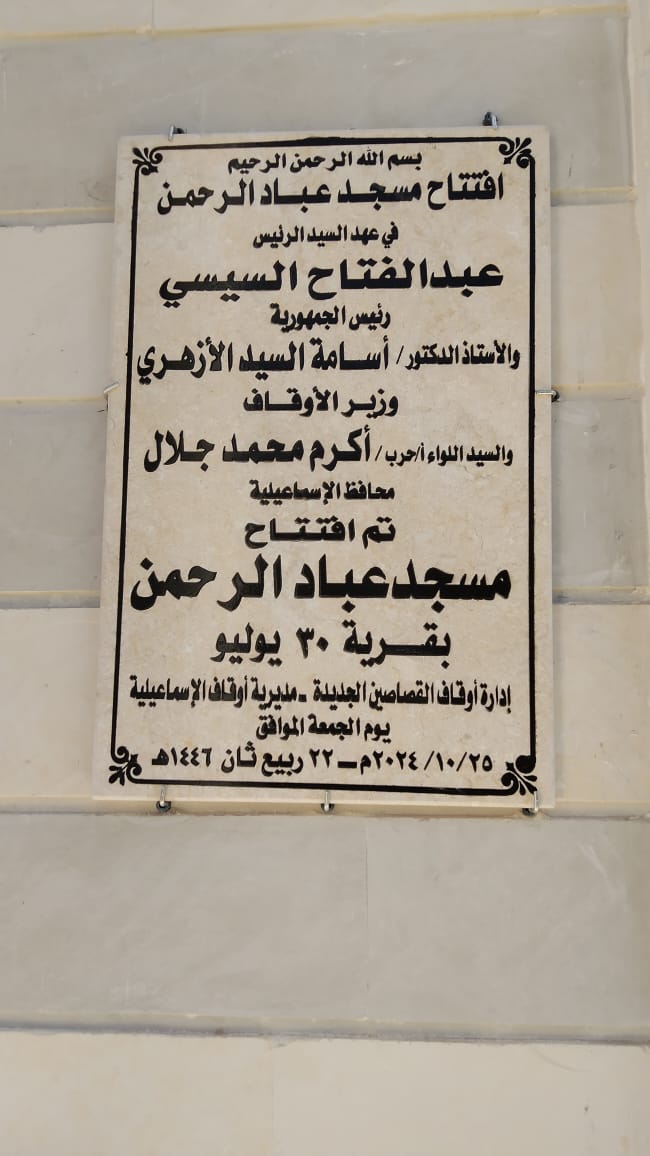 بسم الله الرحمن الرحيم
افتتاح مسجد عباد الرحمن
في عهد السيد الرئيس
عبدالفتاح السيسي
رئيس الجمهورية
والأستاذ الدكتور / أسامة السيد الأزهري
وزير الأوقاف
والسيد اللواء أ/حرب / أكرم محمد جلال
محافظ الإسماعيلية
تم افتتاح
مسجد عباد الرحمن
بقرية ٣٠ يوليو
إدارة أوقاف القصاصين الجديدة - مديرية أوقاف الإسماعيلية
يوم الجمعة الموافق
٢٠٢٤/١٠/٢٥م - ٢٢ ربيع ثان ١٤٤٦هـ